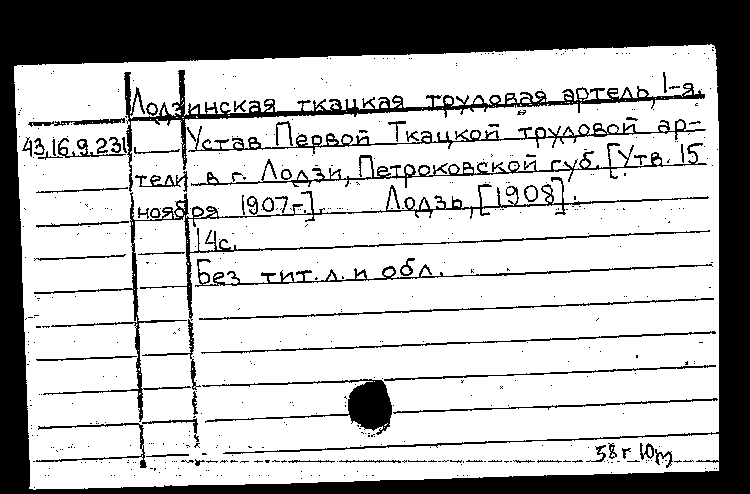 Лодзинская ткацкая трудовая артель, 1-я.
43.16.9.231 Устав Первой Ткацкой трудовой ар-
тели в г. Лодзи, Петроковской губ. [Утв. 15
ноября 1907г.]. Лодзь, [1908].
14с.
Без тит. л. и обл.
58г 10m